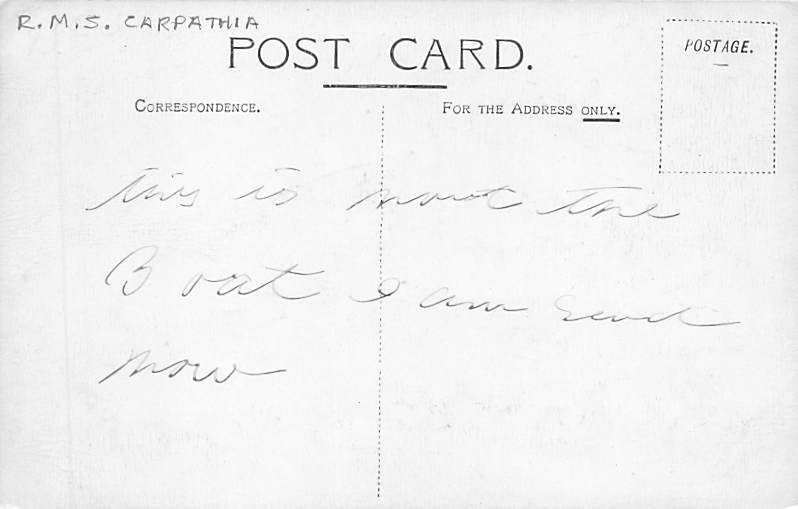 R.M.S. CARPATHIA
POST CARD.
POSTAGE.
CORRESPONDENCE.
FOR THE ADDRESS ONLY.
this is the
Boat I am
now